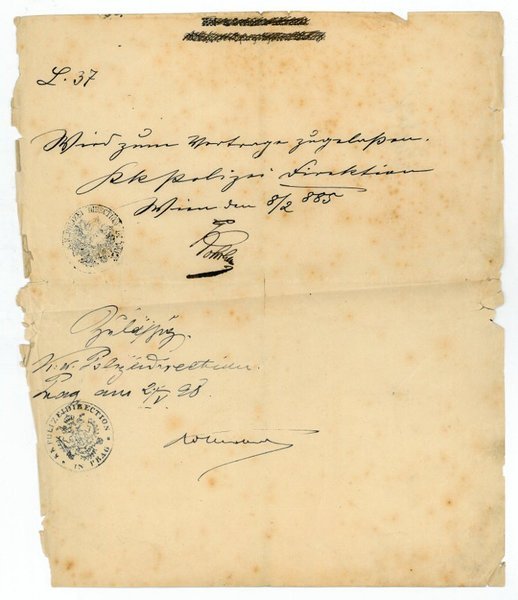 L. 37
Wird zum Vortrage zugelaßen.
KK Polizei Direktion
Wien den 8/2 885
Zulässig.
K. k. Polizeidirection
Prag am 24/V 98.
KK POLIZEIDIRECTION
IN PRAG